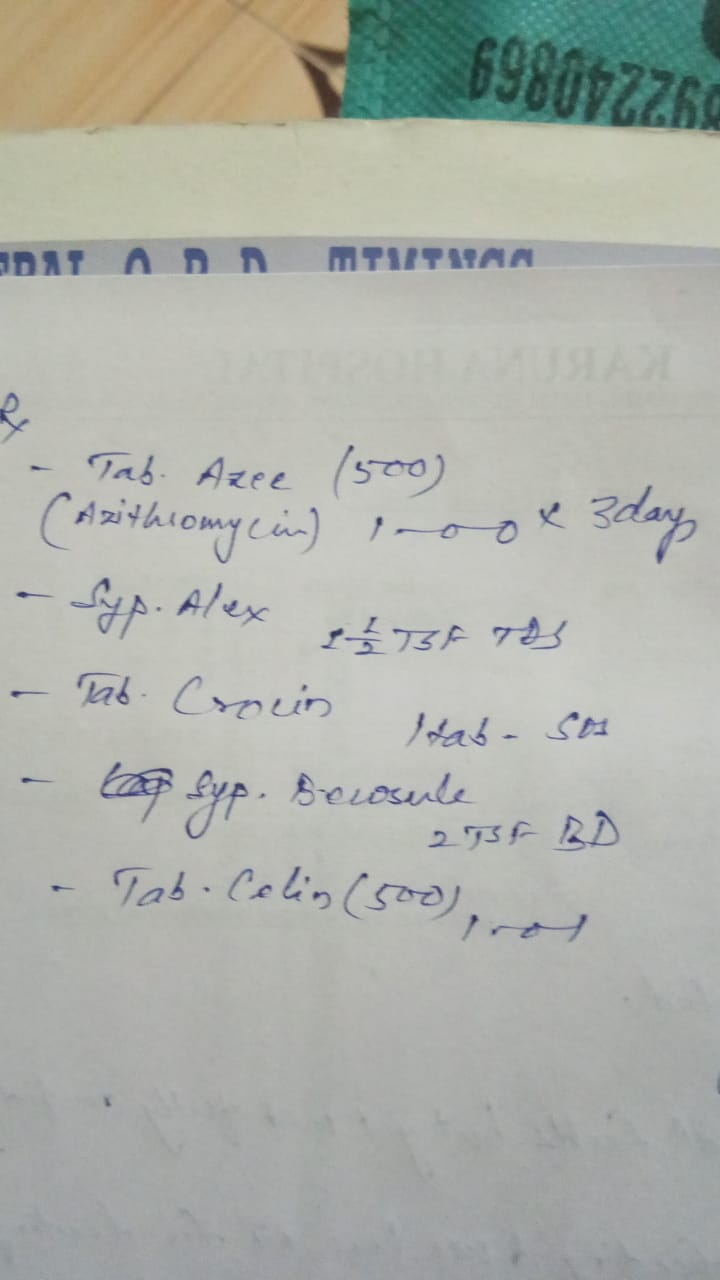 892240869
O P D TIMINGS
KARUNA HOSPITAL
Rx
- Tab. Azee (500)
(Azithromycin) 1-0-0 x 3days
- Syp. Alex 1 1/2 TSF TDS
- Tab. Crocin 1tab - SOS
- Syp. Becosule
2 TSF BD
- Tab. Celin (500) 1-0-1